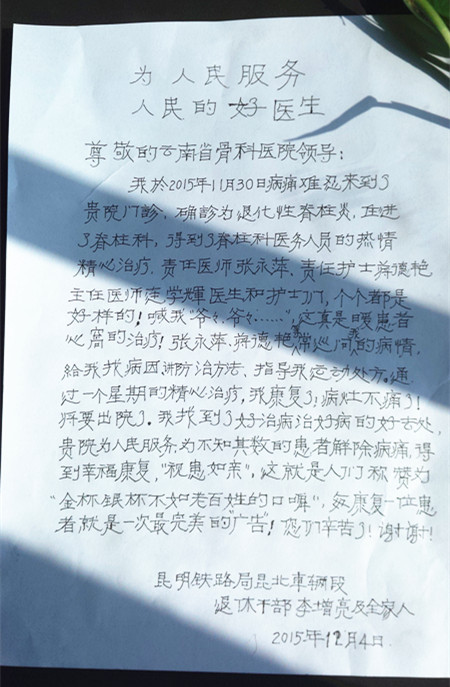 为人民服务
人民的好医生
尊敬的云南省骨科医院领导：
我於2015年11月30日病痛难忍来到了
贵院门诊，确诊为退化性脊柱炎，住进
了脊柱科，得到了脊柱科医务人员的热情
精心治疗．责任医师张永萍．责任护士蒋德艳
主任医师连学輝医生和护士们，个个都是
好样的！喊我“爷々，爷々……”，这真是暖患者
心窝的治疗！张永萍．蒋德艳等常巡问我的病情，
给我找病因讲防治方法、指导我运动处方。通
过一个星期的精心治疗，我康复了！病灶不痛了！
将要出院了。我找到了好治病治好病的好去处，
贵院为人民服务．为不知其数的患者解除病痛，得
到幸福康复，“视患如亲”，这就是人们称赞为
“金杯银杯不如老百姓的口啤”，每康复一位患
者就是一次最完美的“广告”！您们辛苦了！谢谢！
昆明铁路局昆北車辆段
退休干部 李增亮及全家人
2015年12月4日